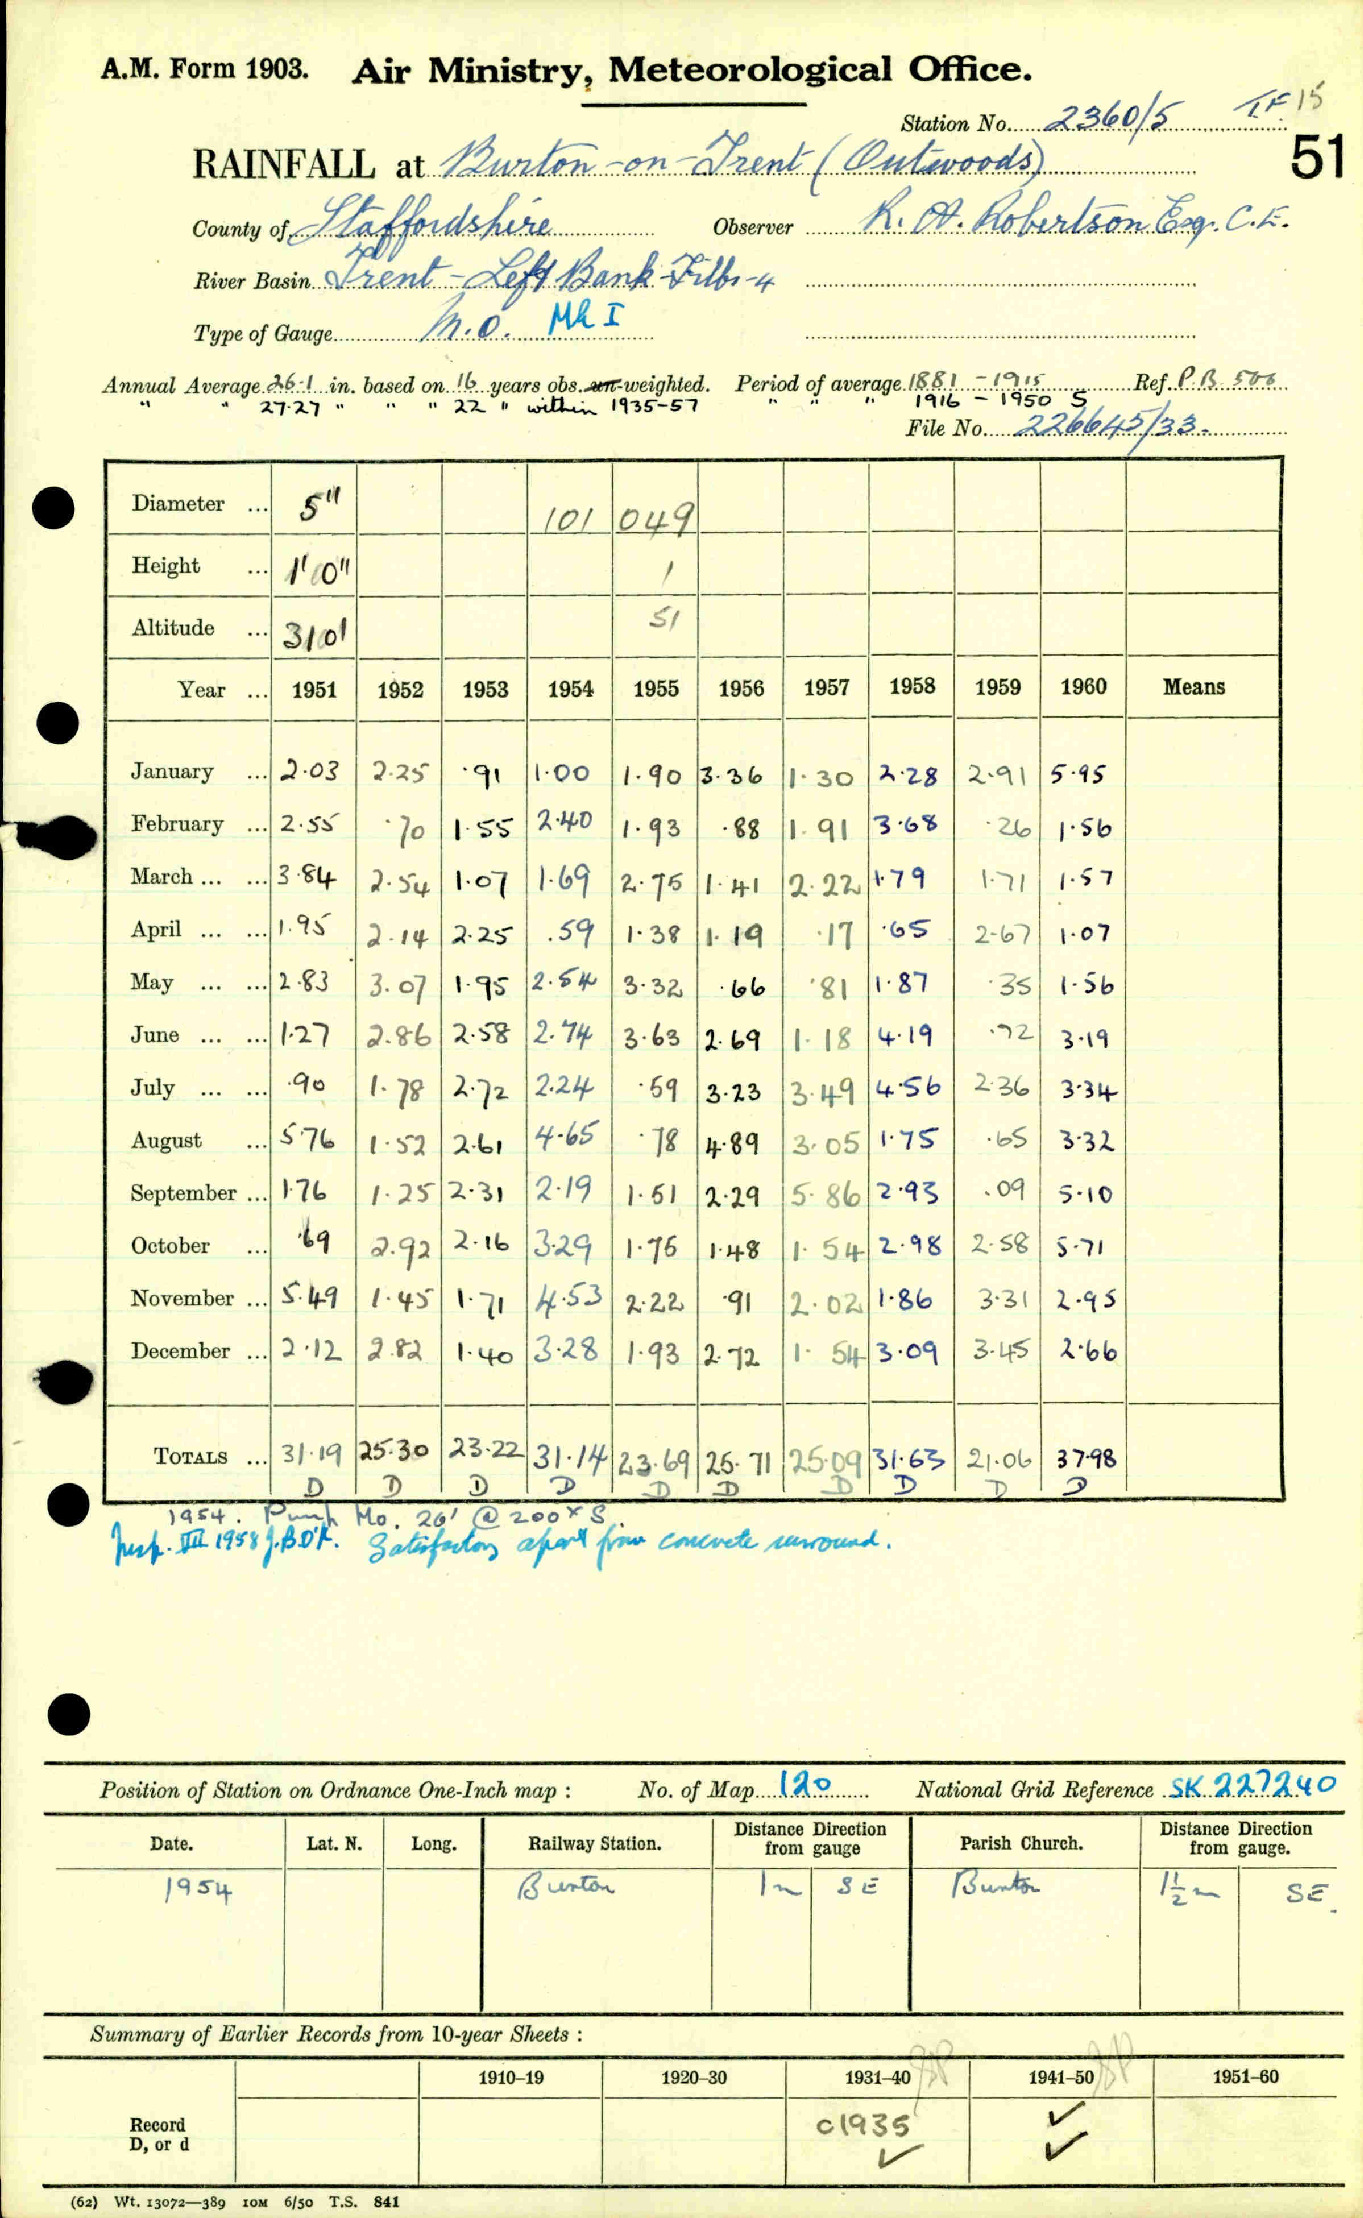 A.M. Form 1903. Air Ministry, Meteorological Office.
T.F. 15
Station No. 2360/5
51
RAINFALL at Burton-on-Trent (Outwoods)
County of Staffordshire Observer R. A. Robertson Esq. C.E.
River Basin Trent - Left Bank Tribs - 4
Type of Gauge M.O. Mk I
Annual Average 26.1 in. based on 16 years obs. un-weighted. Period of average 1881 - 1915 Ref. P.B. 506
" " 27.27 " " " 22 " within 1935-57 " " " 1916 - 1950 S
File No. 226645/33.
Diameter ... 5" 101 049
Height ... 1' 0" 1
Altitude ... 310' 51
Year ... 1951 1952 1953 1954 1955 1956 1957 1958 1959 1960 Means
January ... 2.03 2.25 .91 1.00 1.90 3.36 1.30 2.28 2.91 5.95
February ... 2.55 .70 1.55 2.40 1.93 .88 1.91 3.68 .26 1.56
March ... ... 3.84 2.54 1.07 1.69 2.75 1.41 2.22 1.79 1.71 1.57
April ... ... 1.95 2.14 2.25 .59 1.38 1.19 .17 .65 2.67 1.07
May ... ... 2.83 3.07 1.95 2.54 3.32 .66 .81 1.87 .35 1.56
June ... ... 1.27 2.86 2.58 2.74 3.63 2.69 1.18 4.19 .72 3.19
July ... ... .90 1.78 2.72 2.24 .59 3.23 3.49 4.56 2.36 3.34
August ... 5.76 1.52 2.61 4.65 .78 4.89 3.05 1.75 .65 3.32
September ... 1.76 1.25 2.31 2.19 1.51 2.29 5.86 2.93 .09 5.10
October ... .69 2.92 2.16 3.29 1.75 1.48 1.54 2.98 2.58 5.71
November ... 5.49 1.45 1.71 4.53 2.22 .91 2.02 1.86 3.31 2.95
December ... 2.12 2.82 1.40 3.28 1.93 2.72 1.54 3.09 3.45 2.66
TOTALS ... 31.19 25.30 23.22 31.14 23.69 25.71 25.09 31.63 21.06 37.98
D D D D D D D D D D
1954. Pump Ho. 26' @ 200x S.
Insp. VII 1958 J.B.O'K. Satisfactory apart from concrete surround.
Position of Station on Ordnance One-Inch map : No. of Map 120 National Grid Reference SK 227240
Date. Lat. N. Long. Railway Station. Distance Direction from gauge Parish Church. Distance Direction from gauge.
1954 Burton 1m SE Burton 1½m SE.
Summary of Earlier Records from 10-year Sheets :
1910–19 1920–30 1931–40 1941–50 1951–60
Record
D, or d
c1935 ✓ ✓
✓
(62) Wt. 13072—389 10M 6/50 T.S. 841